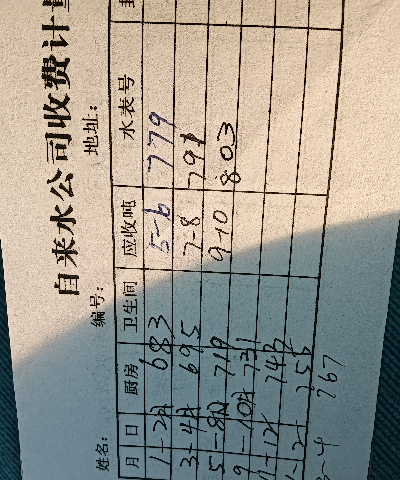 自来水公司收费计
姓名: 编号: 地址:
月 日 厨房 卫生间 应收吨 水表号
1-2月 683 5-6 779
3-4月 695 7-8 791
5-8月 719 9-10 803
9-10月 731
11-12 743
1-2 755
3-4 767